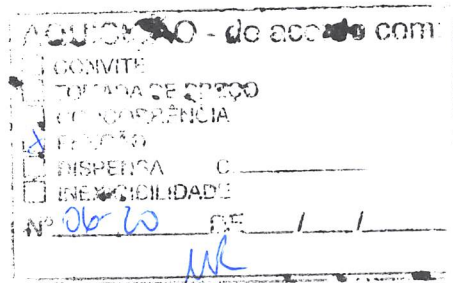 AQUISIÇÃO - de acordo com:
CONVITE
TOMADA DE PREÇO
CONCORRÊNCIA
X
DISPENSA C.
INEXIGIBILIDADE
Nº 06-20 DE / /